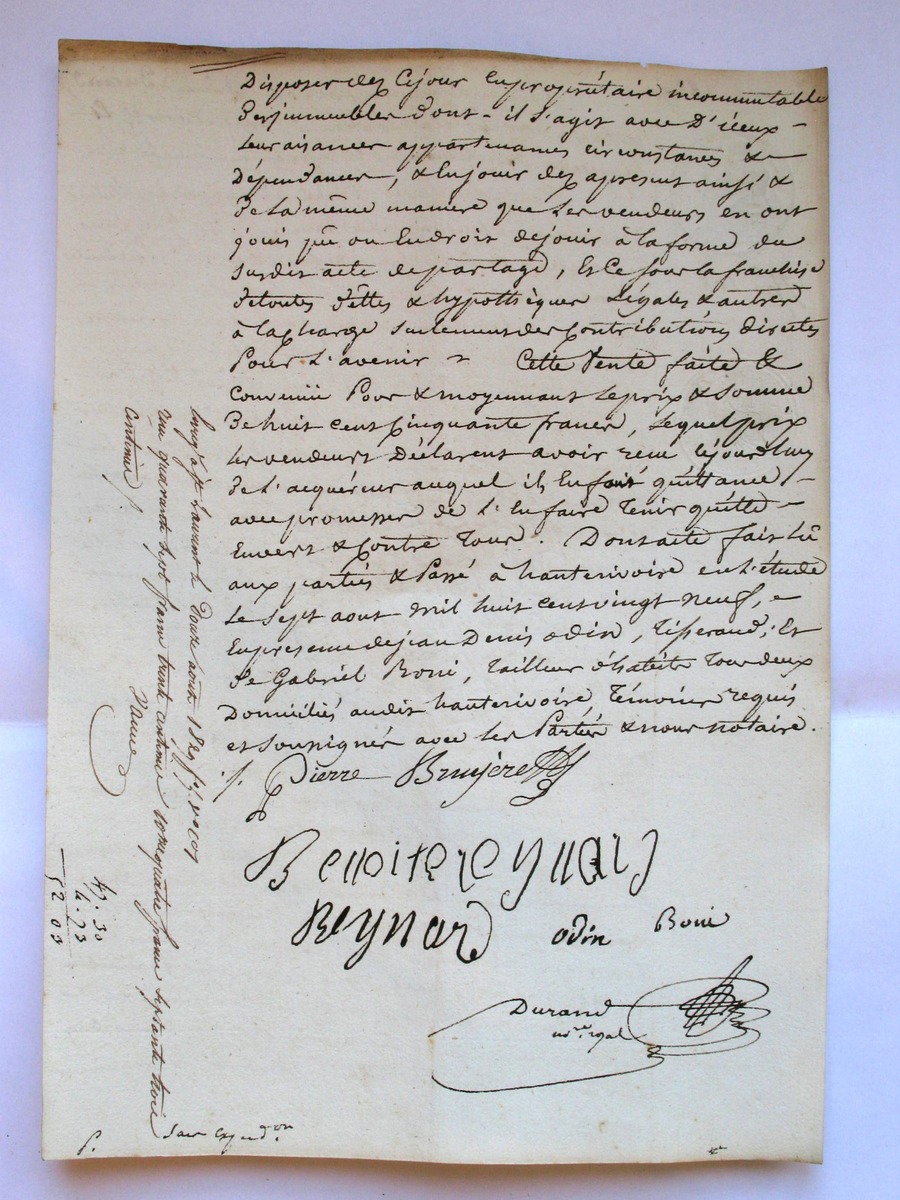 Disposer des Cejour en propriétaire incommutable
des immeubles dont-il s'agit avec D'iceux
leurs aisances appartenances circonstances &
Dépendances, & en jouir des apresent ainsi &
de la même maniere que les vendeurs en ont
jouis pû ou eu droit de jouir à la forme du
susdit acte de partage, Et Ce sous la franchise
de toutes dettes & hypothèques Légales & autres
à la charge seulement des Contributions directes
Pour L'avenir Cette Vente faite &
Convenüe Pour & moyennant le prix & somme
de huit cent Cinquante francs, Lequel prix
les vendeurs Déclarent avoir reçu cejourdhuy
de L'acquéreur auquel ils En font quittance
avec promesse de L'En faire Tenir quitte
Envers & Contre Tous. Dont acte fait Lû
aux parties & Passé à hauterivoire en L'étude
Le sept aout mil huit cent vingt neuf,
En presence de jean Denis odin, Tisserand, Et
de Gabriel Boni, Tailleur d'habits Tous deux
Domiciliés audit hauterivoire, Témoins requis
et soussignés avec les Parties & nous notaire.
Pierre Bruyere
Benoite reynard
Reynard odin Boni
Durand
nore royal
Enregistré à St Laurent le Douze aout 1829
reçu quarante sept francs trente centimes quatre francs septante trois
Centimes
47. 30
4. 73
52 03
Sans Expedon